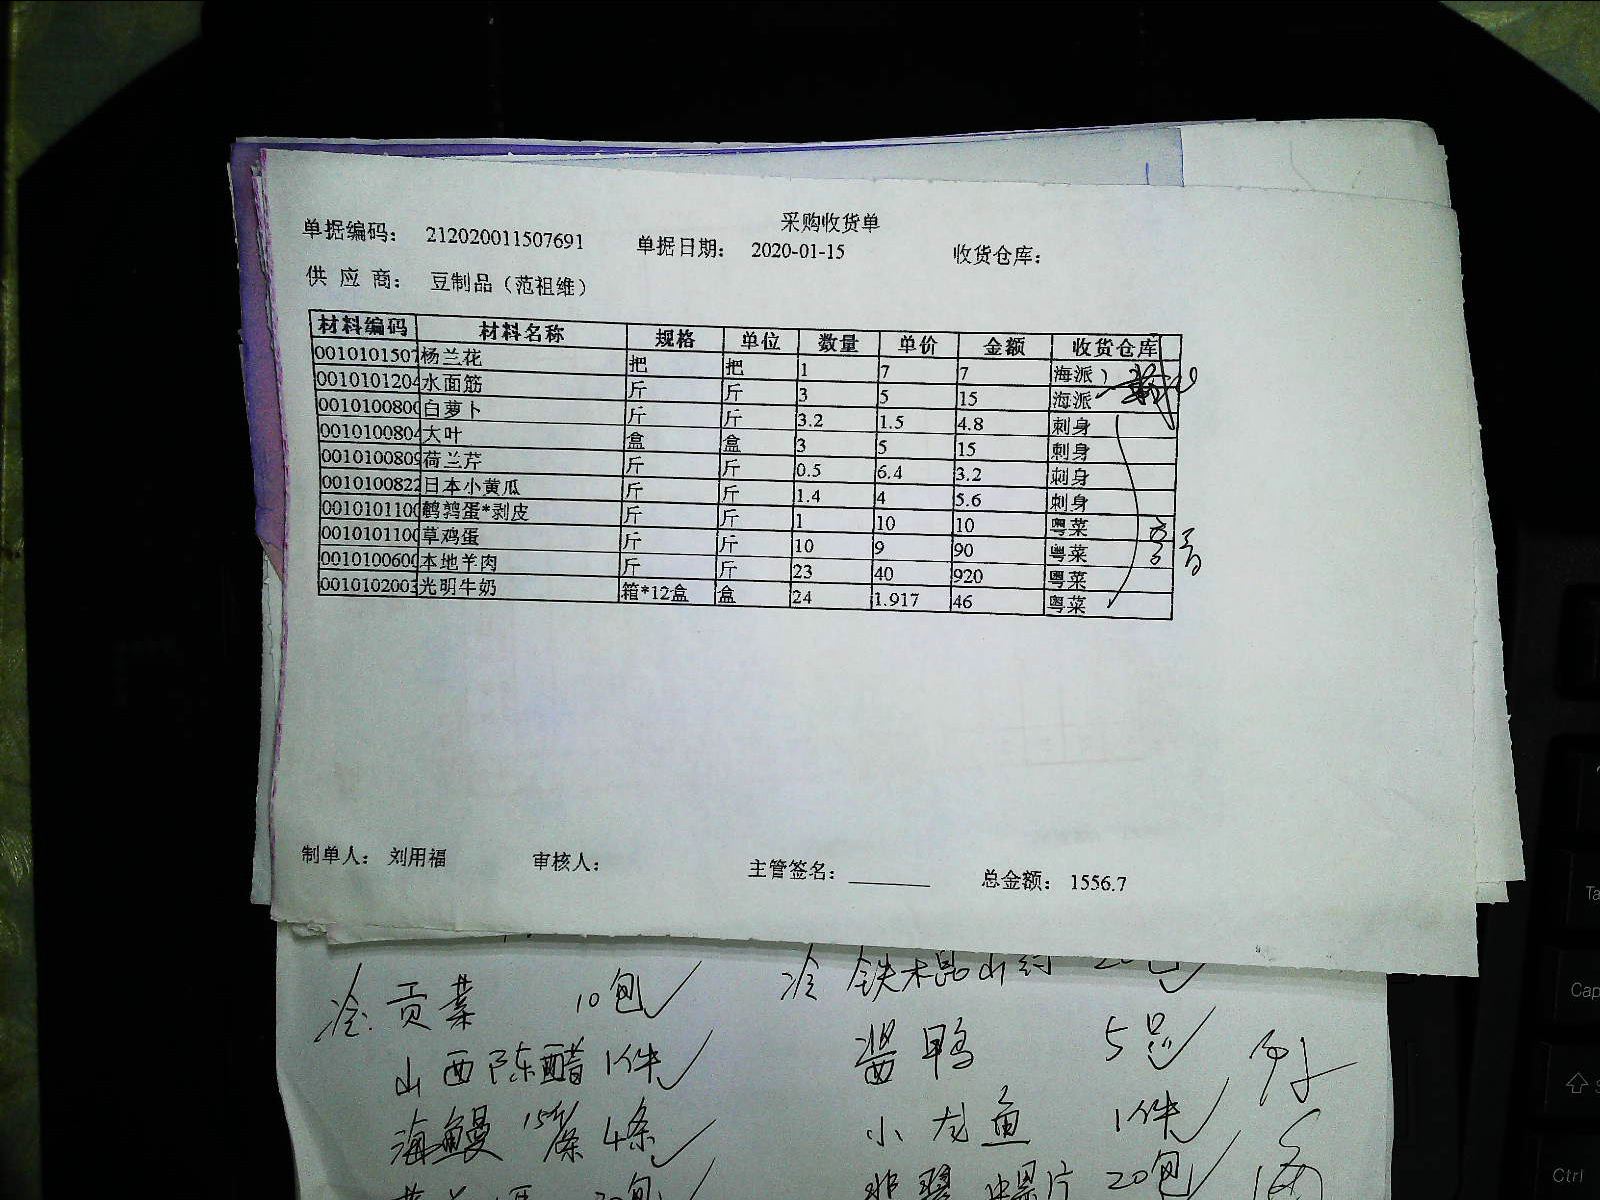 采购收货单
单据编码： 212020011507691 单据日期： 2020-01-15 收货仓库：
供 应 商： 豆制品（范祖维）
材料编码 材料名称 规格 单位 数量 单价 金额 收货仓库
0010101507 杨兰花 把 把 1 7 7 海派）
0010101204 水面筋 斤 斤 3 5 15 海派
001010080 白萝卜 斤 斤 3.2 1.5 4.8 刺身
0010100804 大叶 盒 盒 3 5 15 刺身
0010100809 荷兰芹 斤 斤 0.5 6.4 3.2 刺身
0010100822 日本小黄瓜 斤 斤 1.4 4 5.6 刺身
001010110 鹌鹑蛋*剥皮 斤 斤 1 10 10 粤菜
001010110 草鸡蛋 斤 斤 10 9 90 粤菜
001010060 本地羊肉 斤 斤 23 40 920 粤菜
0010102003 光明牛奶 箱*12盒 盒 24 1.917 46 粤菜
制单人： 刘用福 审核人： 主管签名： 总金额： 1556.7
冷 贡菜 10包 冷 铁木棍山药
山西陈醋 1件 酱鸭 5只
海鳗 4条 小龙鱼 1件
翡翠螺片 20包